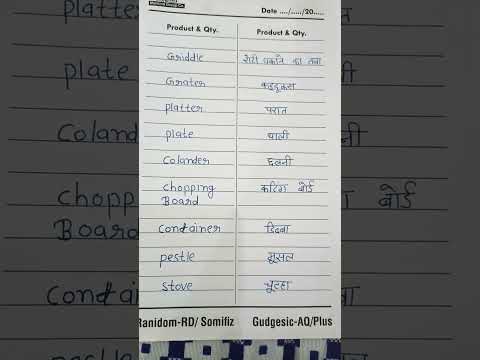 Date ..../...../20.....
Product & Qty. Product & Qty.
Griddle रोटी पकाने का तवा
Grater कद्दूकस
platter परात
plate थाली
Colander छलनी
Chopping Board कटिंग बोर्ड
Container डिब्बा
pestle मूसल
stove चूल्हा
Ranidom-RD/ Somifiz Gudgesic-AQ/Plus